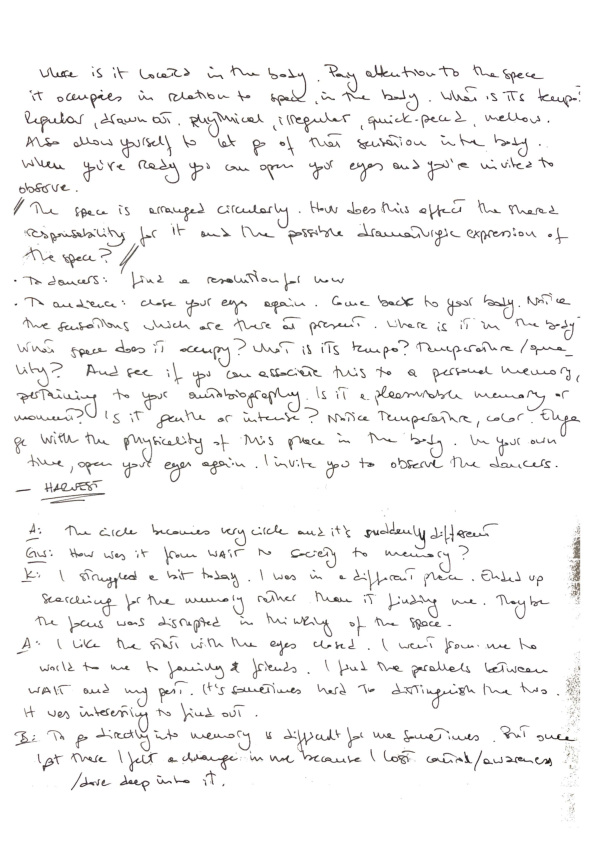 where is it located in the body. Pay attention to the space
it occupies in relation to space, in the body. What is its tempo?
Regular, drawn out, rhythmical, irregular, quick-paced, mellow.
Also allow yourself to let go of that sensation in the body.
When you're ready you can open your eyes and you're invited to
observe.
// The space is arranged circularly. How does this affect the shared
responsability for it and the possible dramaturgic expression of
the space? //
· To dancers: find a resolution for now
· To audience: close your eyes again. Come back to your body. Notice
the sensations which are there at present. Where is it in the body
What space does it occupy? What is its tempo? Temperature/qua-
lity? And see if you can associate this to a personal memory,
pertaining to your autobiography. Is it a pleasurable memory or
moment? Is it gentle or intense? Notice temperature, color. Enga
ge with the physicality of this place in the body. In your own
time, open your eyes again. I invite you to observe the dancers.
— HARVEST
A: The circle becomes very circle and it's suddenly different
GW: How was it from WAIT to society to memory?
K: I struggled a bit today. I was in a different place. Ended up
searching for the memory rather than it finding me. Maybe
the focus was disrupted in thinking of the space.
A: I like the start with the eyes closed. I went from me to
world to me to family & friends. I find the parallels between
WAIT and my past. It's sometimes hard to distinguish the two.
It was interesting to find out.
B: To go directly into memory is difficult for me sometimes. But once
I got there I felt a change in me because I lost control/awareness
/dove deep into it.